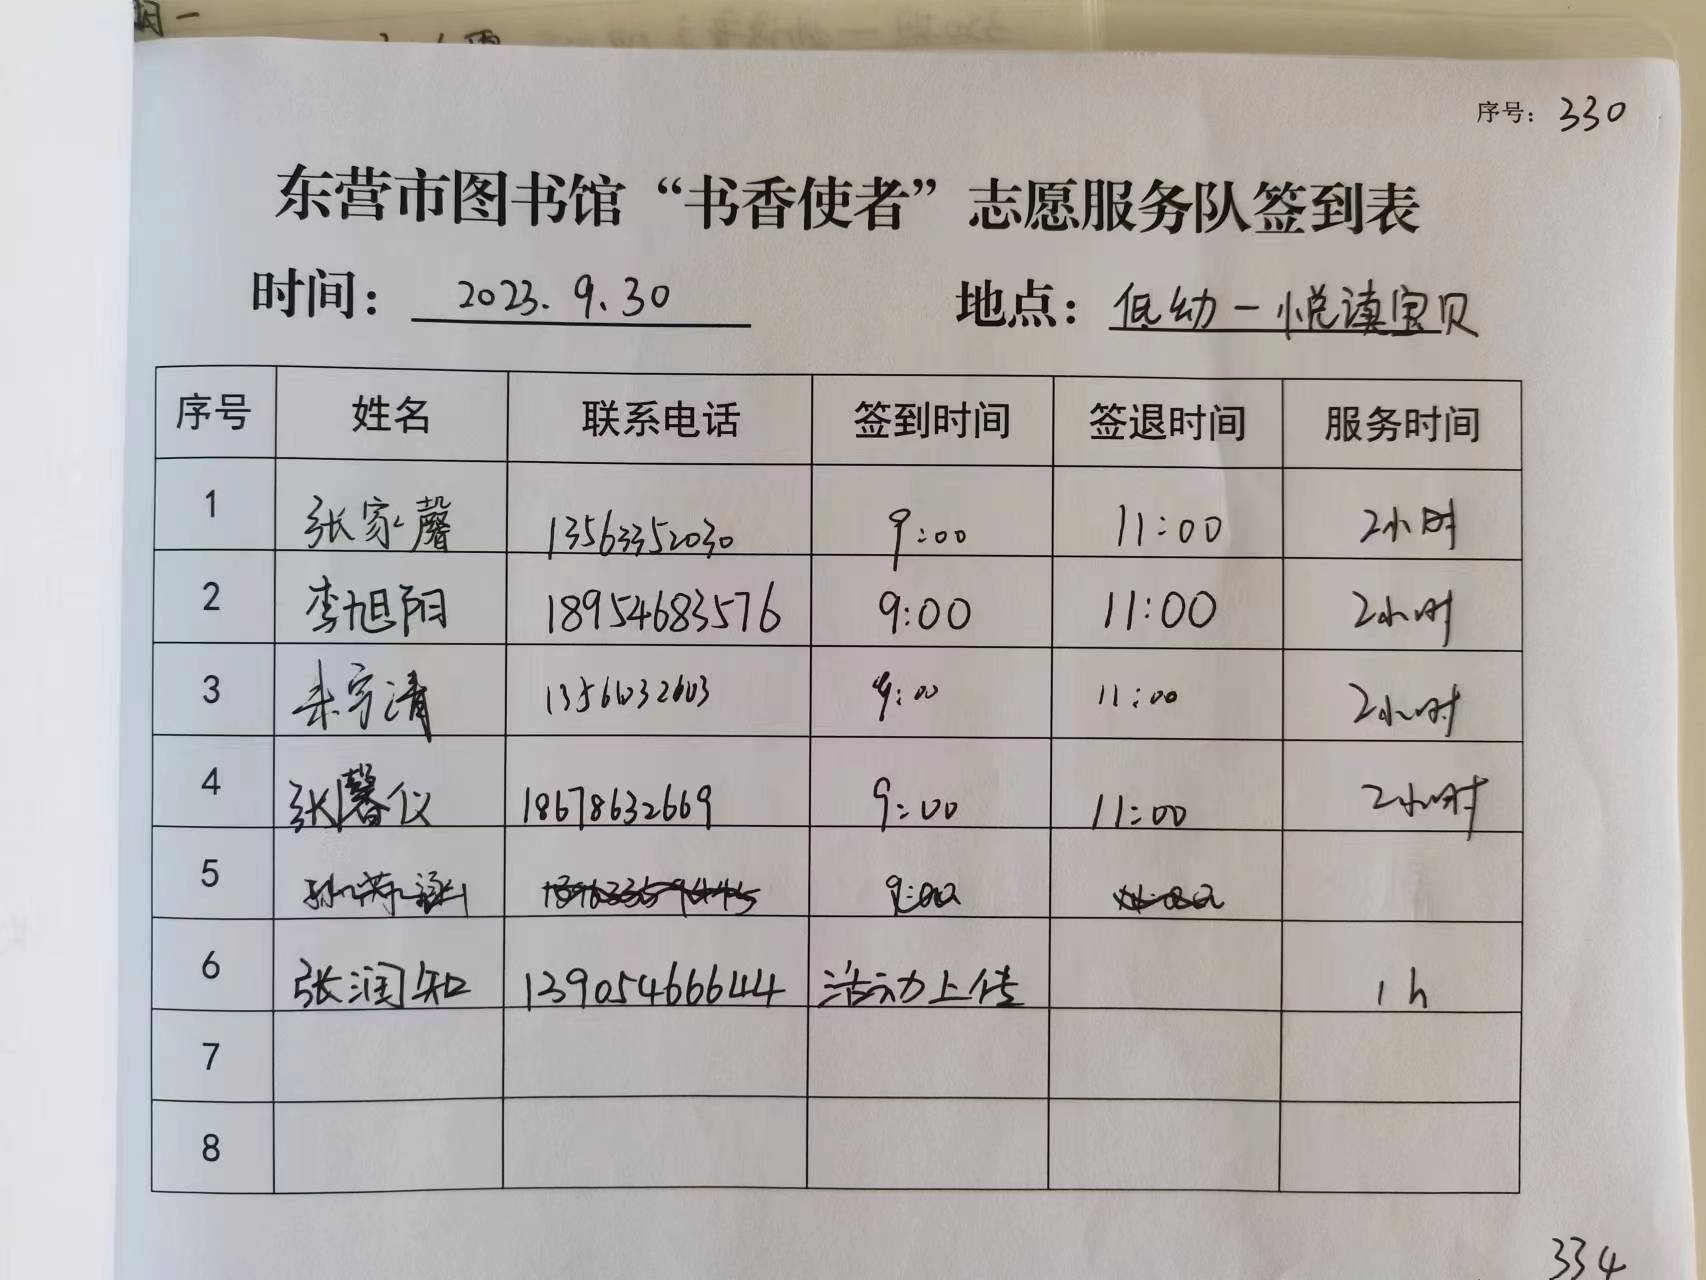 序号：330
东营市图书馆“书香使者”志愿服务队签到表
时间：2023.9.30 地点：低幼一悦读宝贝
序号 姓名 联系电话 签到时间 签退时间 服务时间
1 张家馨 13563352030 9:00 11:00 2小时
2 李旭阳 18954683576 9:00 11:00 2小时
3 宇清 9:00 11:00 2小时
4 张馨仪 18678632669 9:00 11:00 2小时
5 9:00
6 张润知 13905466644 活动上传 1h
7
8
334